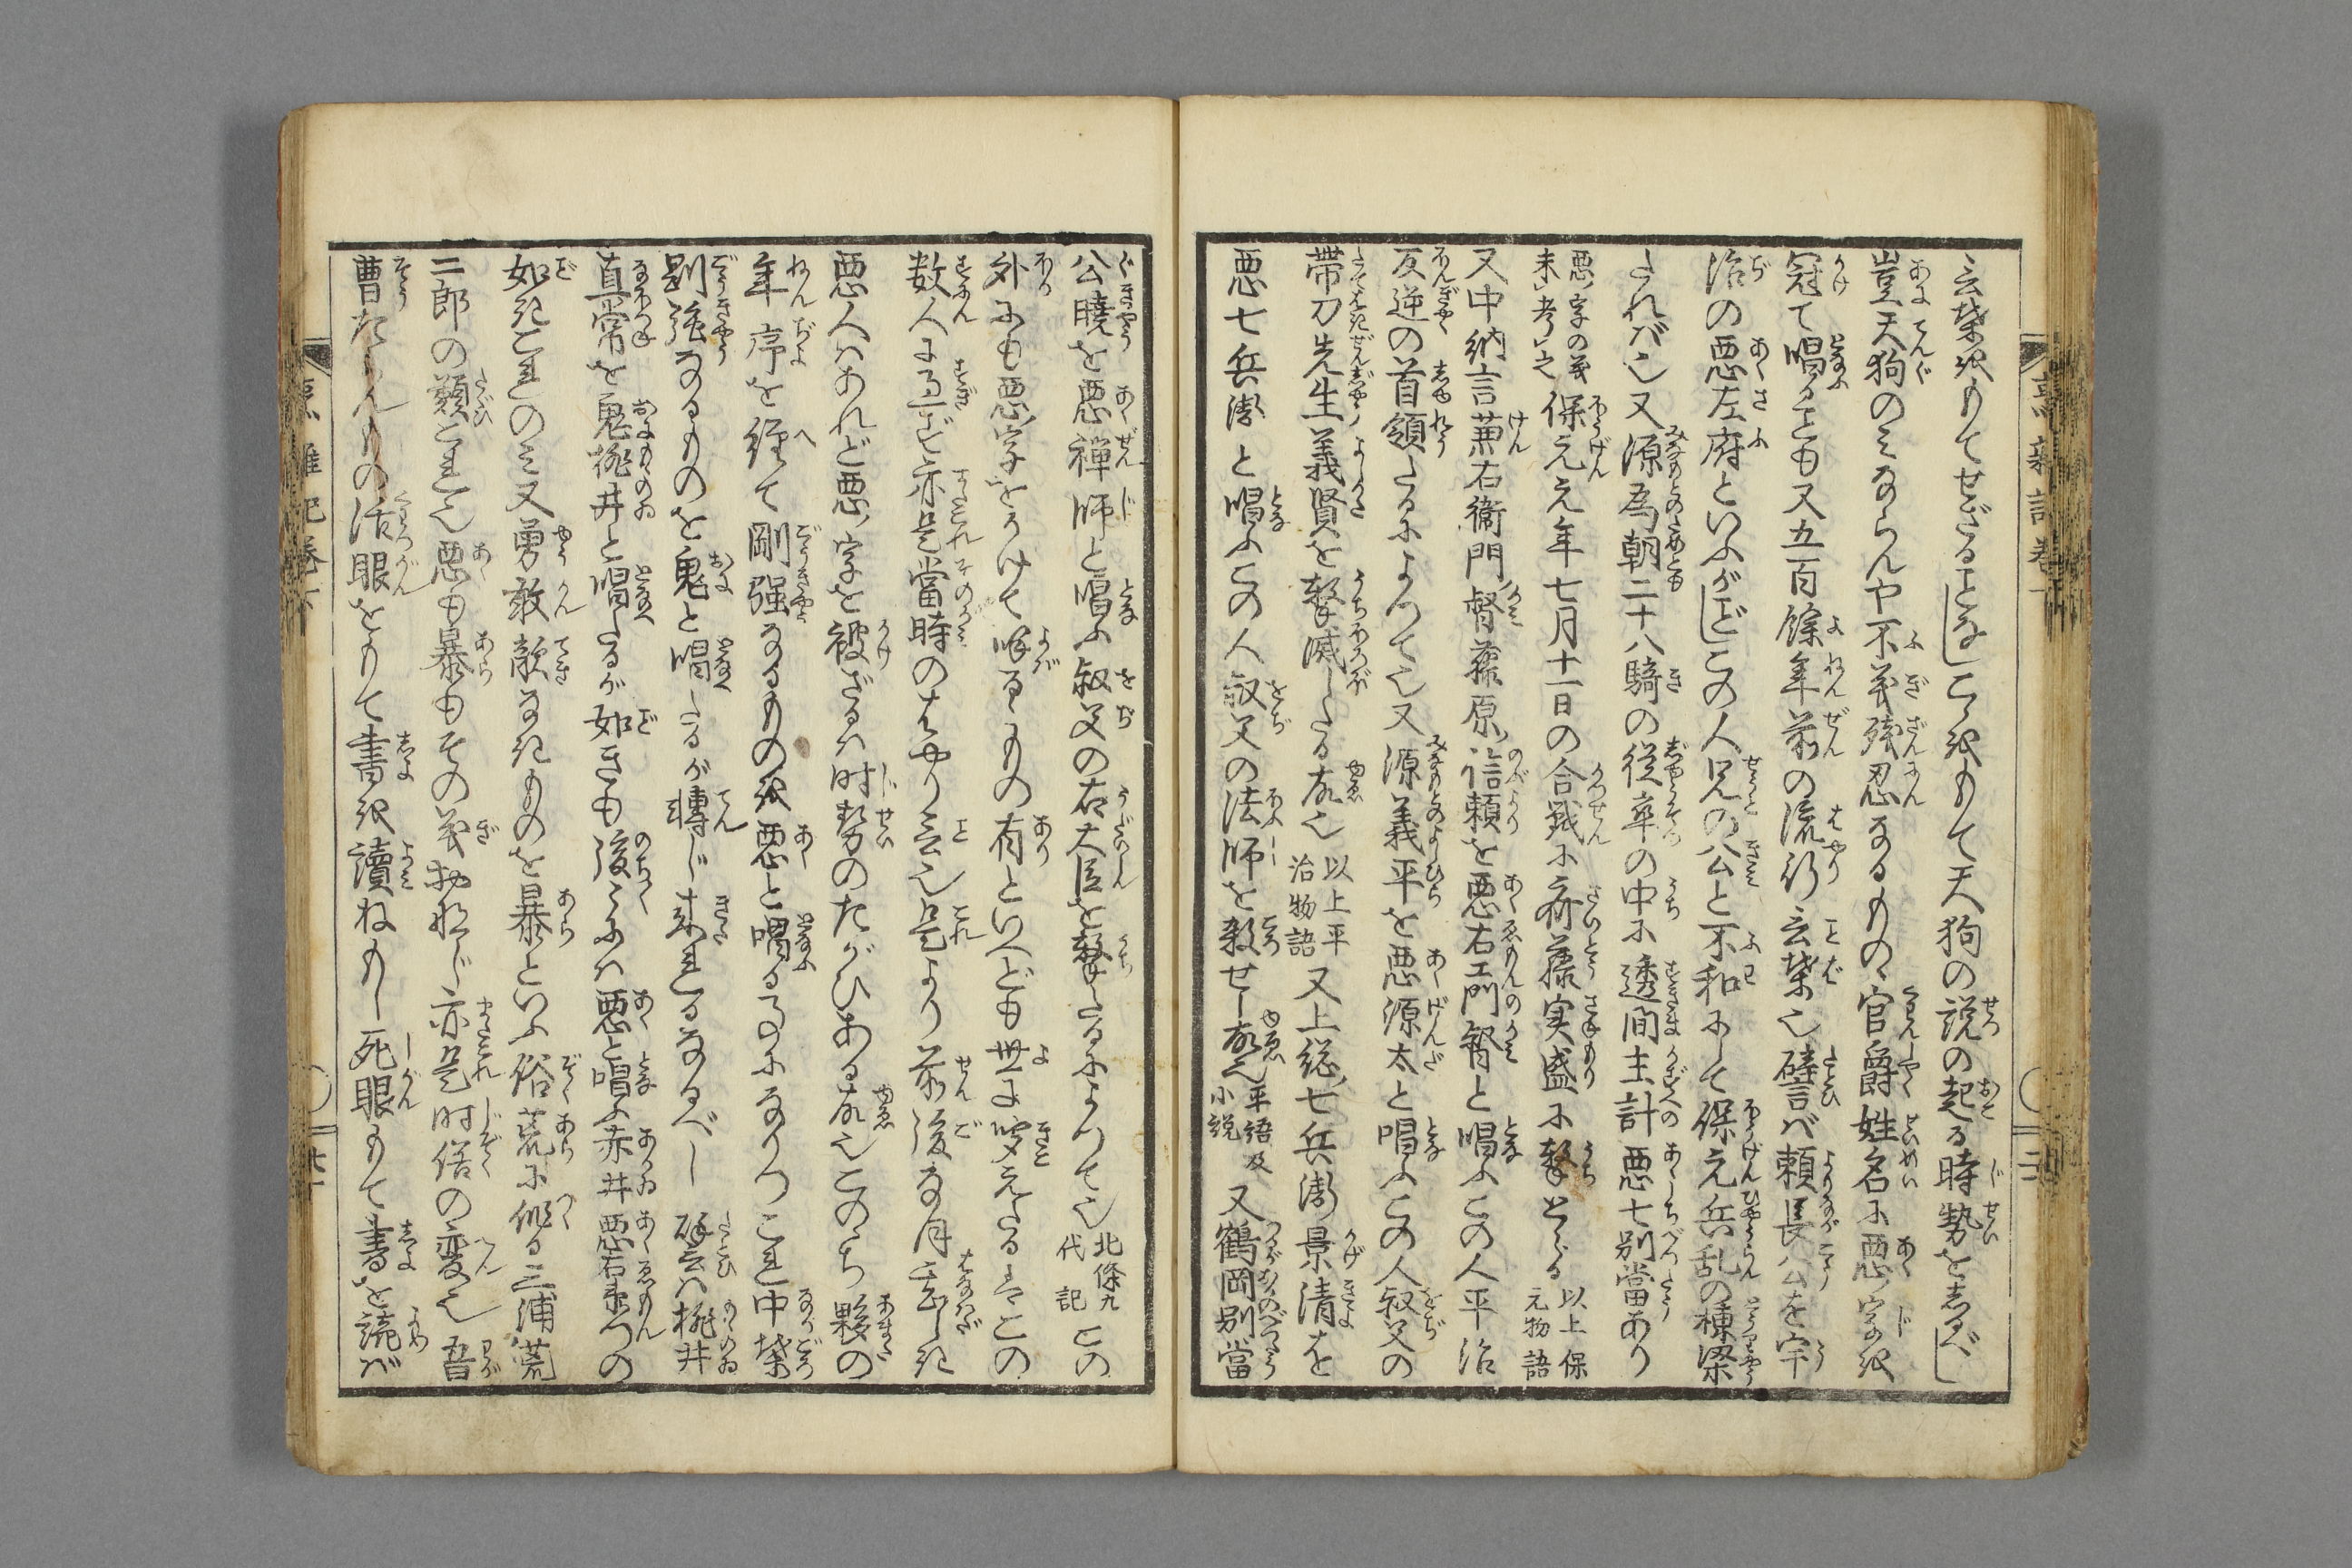 云葉をもてせざることなしこゝをもて天狗の説の起る時勢をしるべし
豈天狗のミならんや不義残忍なるもの官爵姓名に悪字を
冠て唱ることも又五百餘年前の流行云葉也譬バ頼長公を宇
治の悪左府といふがごとしこの人兄の公と不和にして保元兵乱の棟梁
たれバ也又源為朝二十八騎の従卒の中に透間主計悪七別當あり
悪字の義
未考之
保元元年七月十一日の合戦に斎藤実盛に撃とらる
以上保
元物語
又中納言兼右衛門督藤原信頼を悪右エ門督と唱ふこの人平治
反逆の首領たるによつて也又源義平を悪源太と唱ふこの人叙父の
帯刀先生義賢を撃滅したる故也
以上平
治物語
又上総七兵衛景清を
悪七兵衛と唱ふこの人叙父の法師を殺せし故也
平語及
小説
又鶴岡別當
公暁を悪禅師と唱ふ叙父の右大臣を撃たるによつて也
北條九
代記
この
外にも悪字をうけて呼るゝもの有といへども世に聞えたるはこの
数人に過ず亦是當時のはやり言也是より前後な
悪人ハあれど悪字を被ざるハ時勢のたがひある故也このゝち夥の
年序を経て剛強なるものを悪と唱ることになりつこれ中葉
剛強なるものを鬼と唱したるが轉じ来れるなるべし 譬云ハ桃井
直常を鬼桃井と唱したるが如きも後々にハ悪と唱ふ赤井悪右衛門の
如きこれのミ又勇敢敵なきものを暴といふ俗荒に作る三浦荒
二郎の類これ也悪も暴もその義相おなじ亦是時俗の変也吾
曹たらんもの活眼をもて書を讀ねかし死眼もて書を読バ